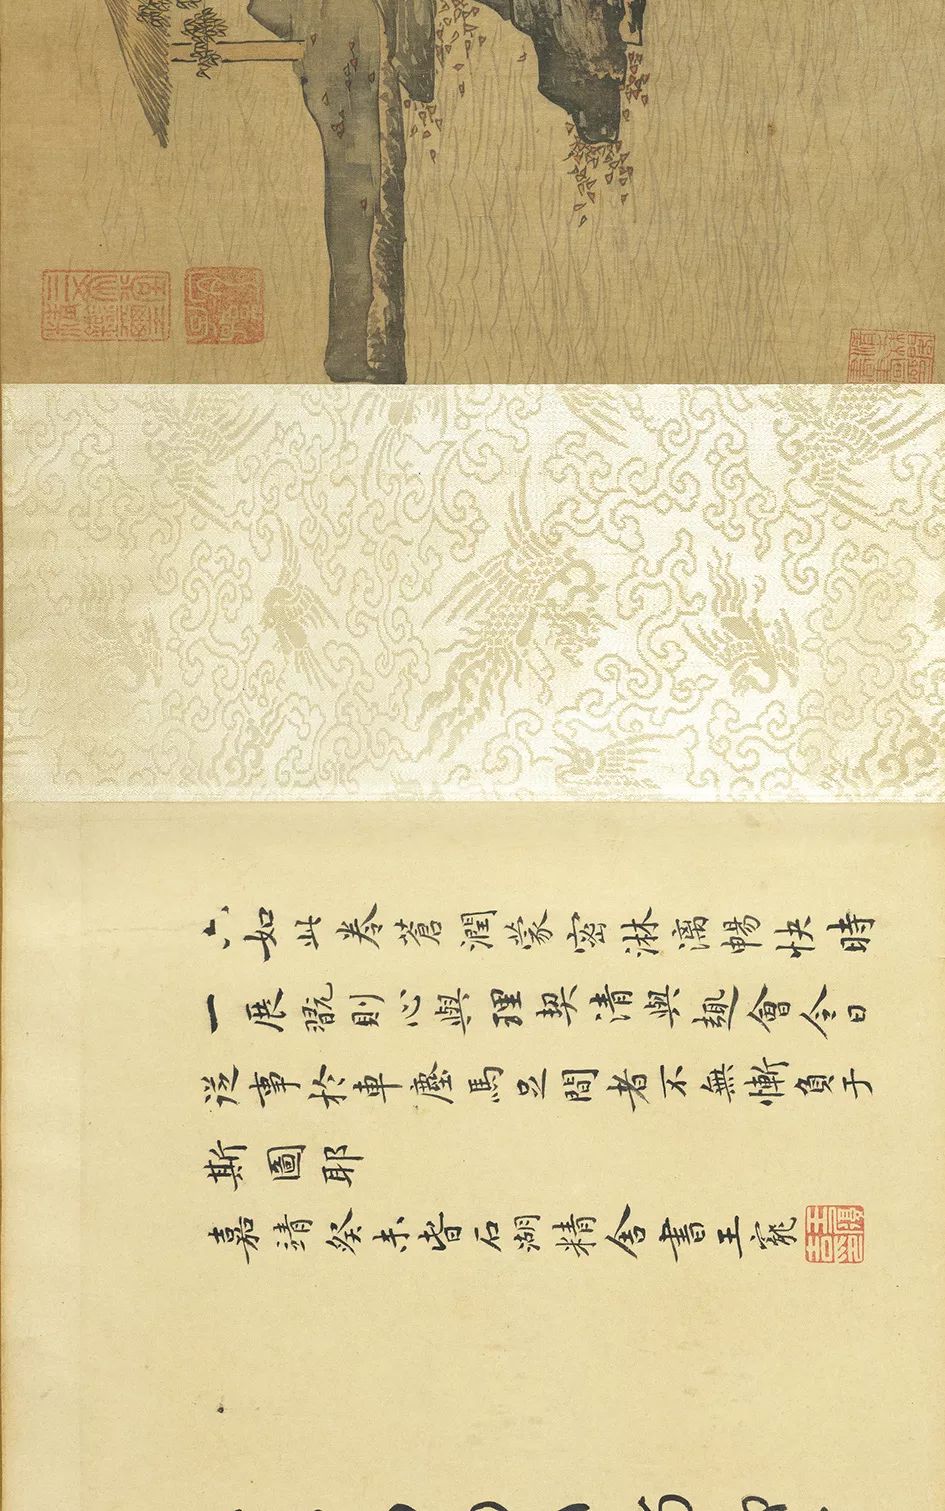 六如此卷蒼潤蒙密淋漓暢快時
一展翫則心與理契清與趣會今日
逐事於車塵馬足間者不無慚負于
斯圖耶
嘉靖癸未皆石湖精舍書王寵